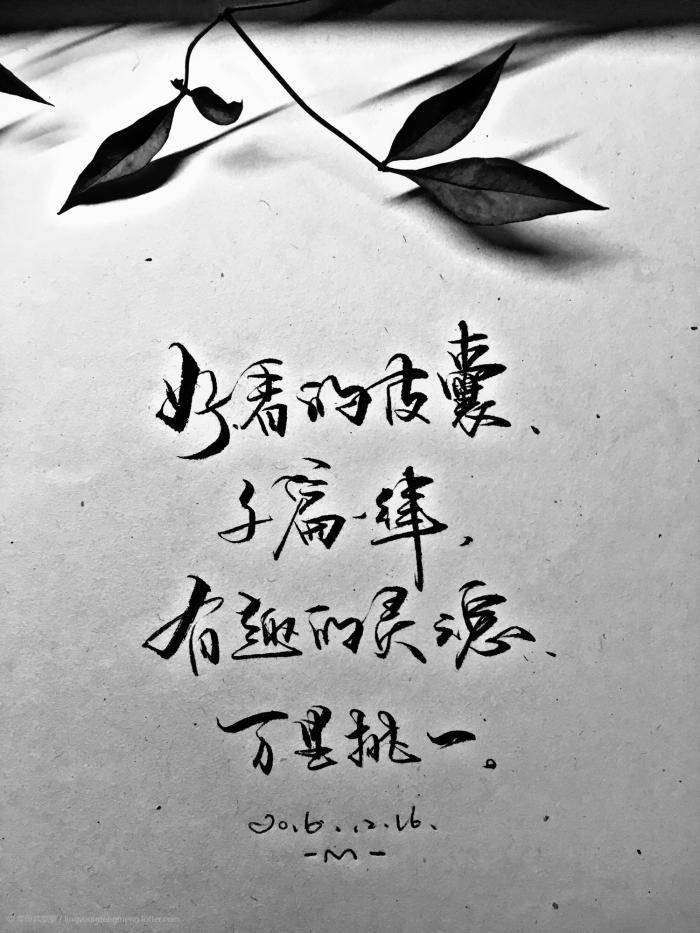 好看的皮囊、
千篇一律，
有趣的灵魂、
万里挑一。
2016.12.16.
-M-